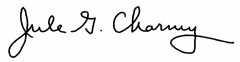 Jule G. Charney